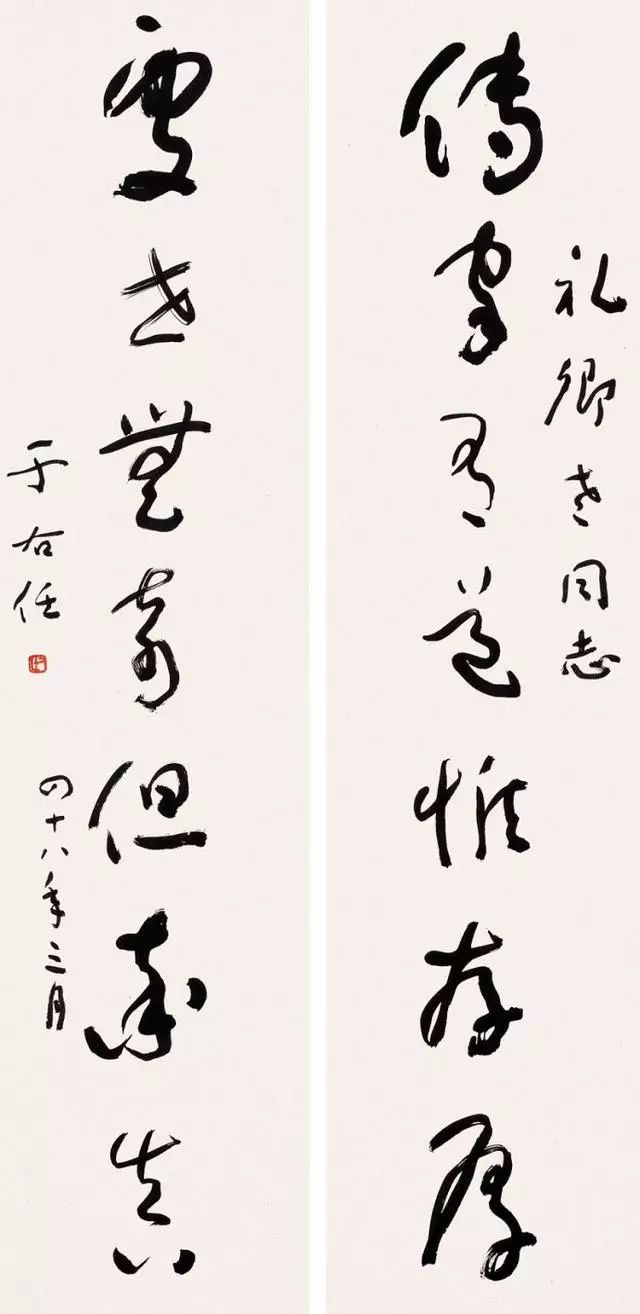 礼卿老同志
傳家有道惟存厚
處世無奇但率真
于右任
四十八年三月